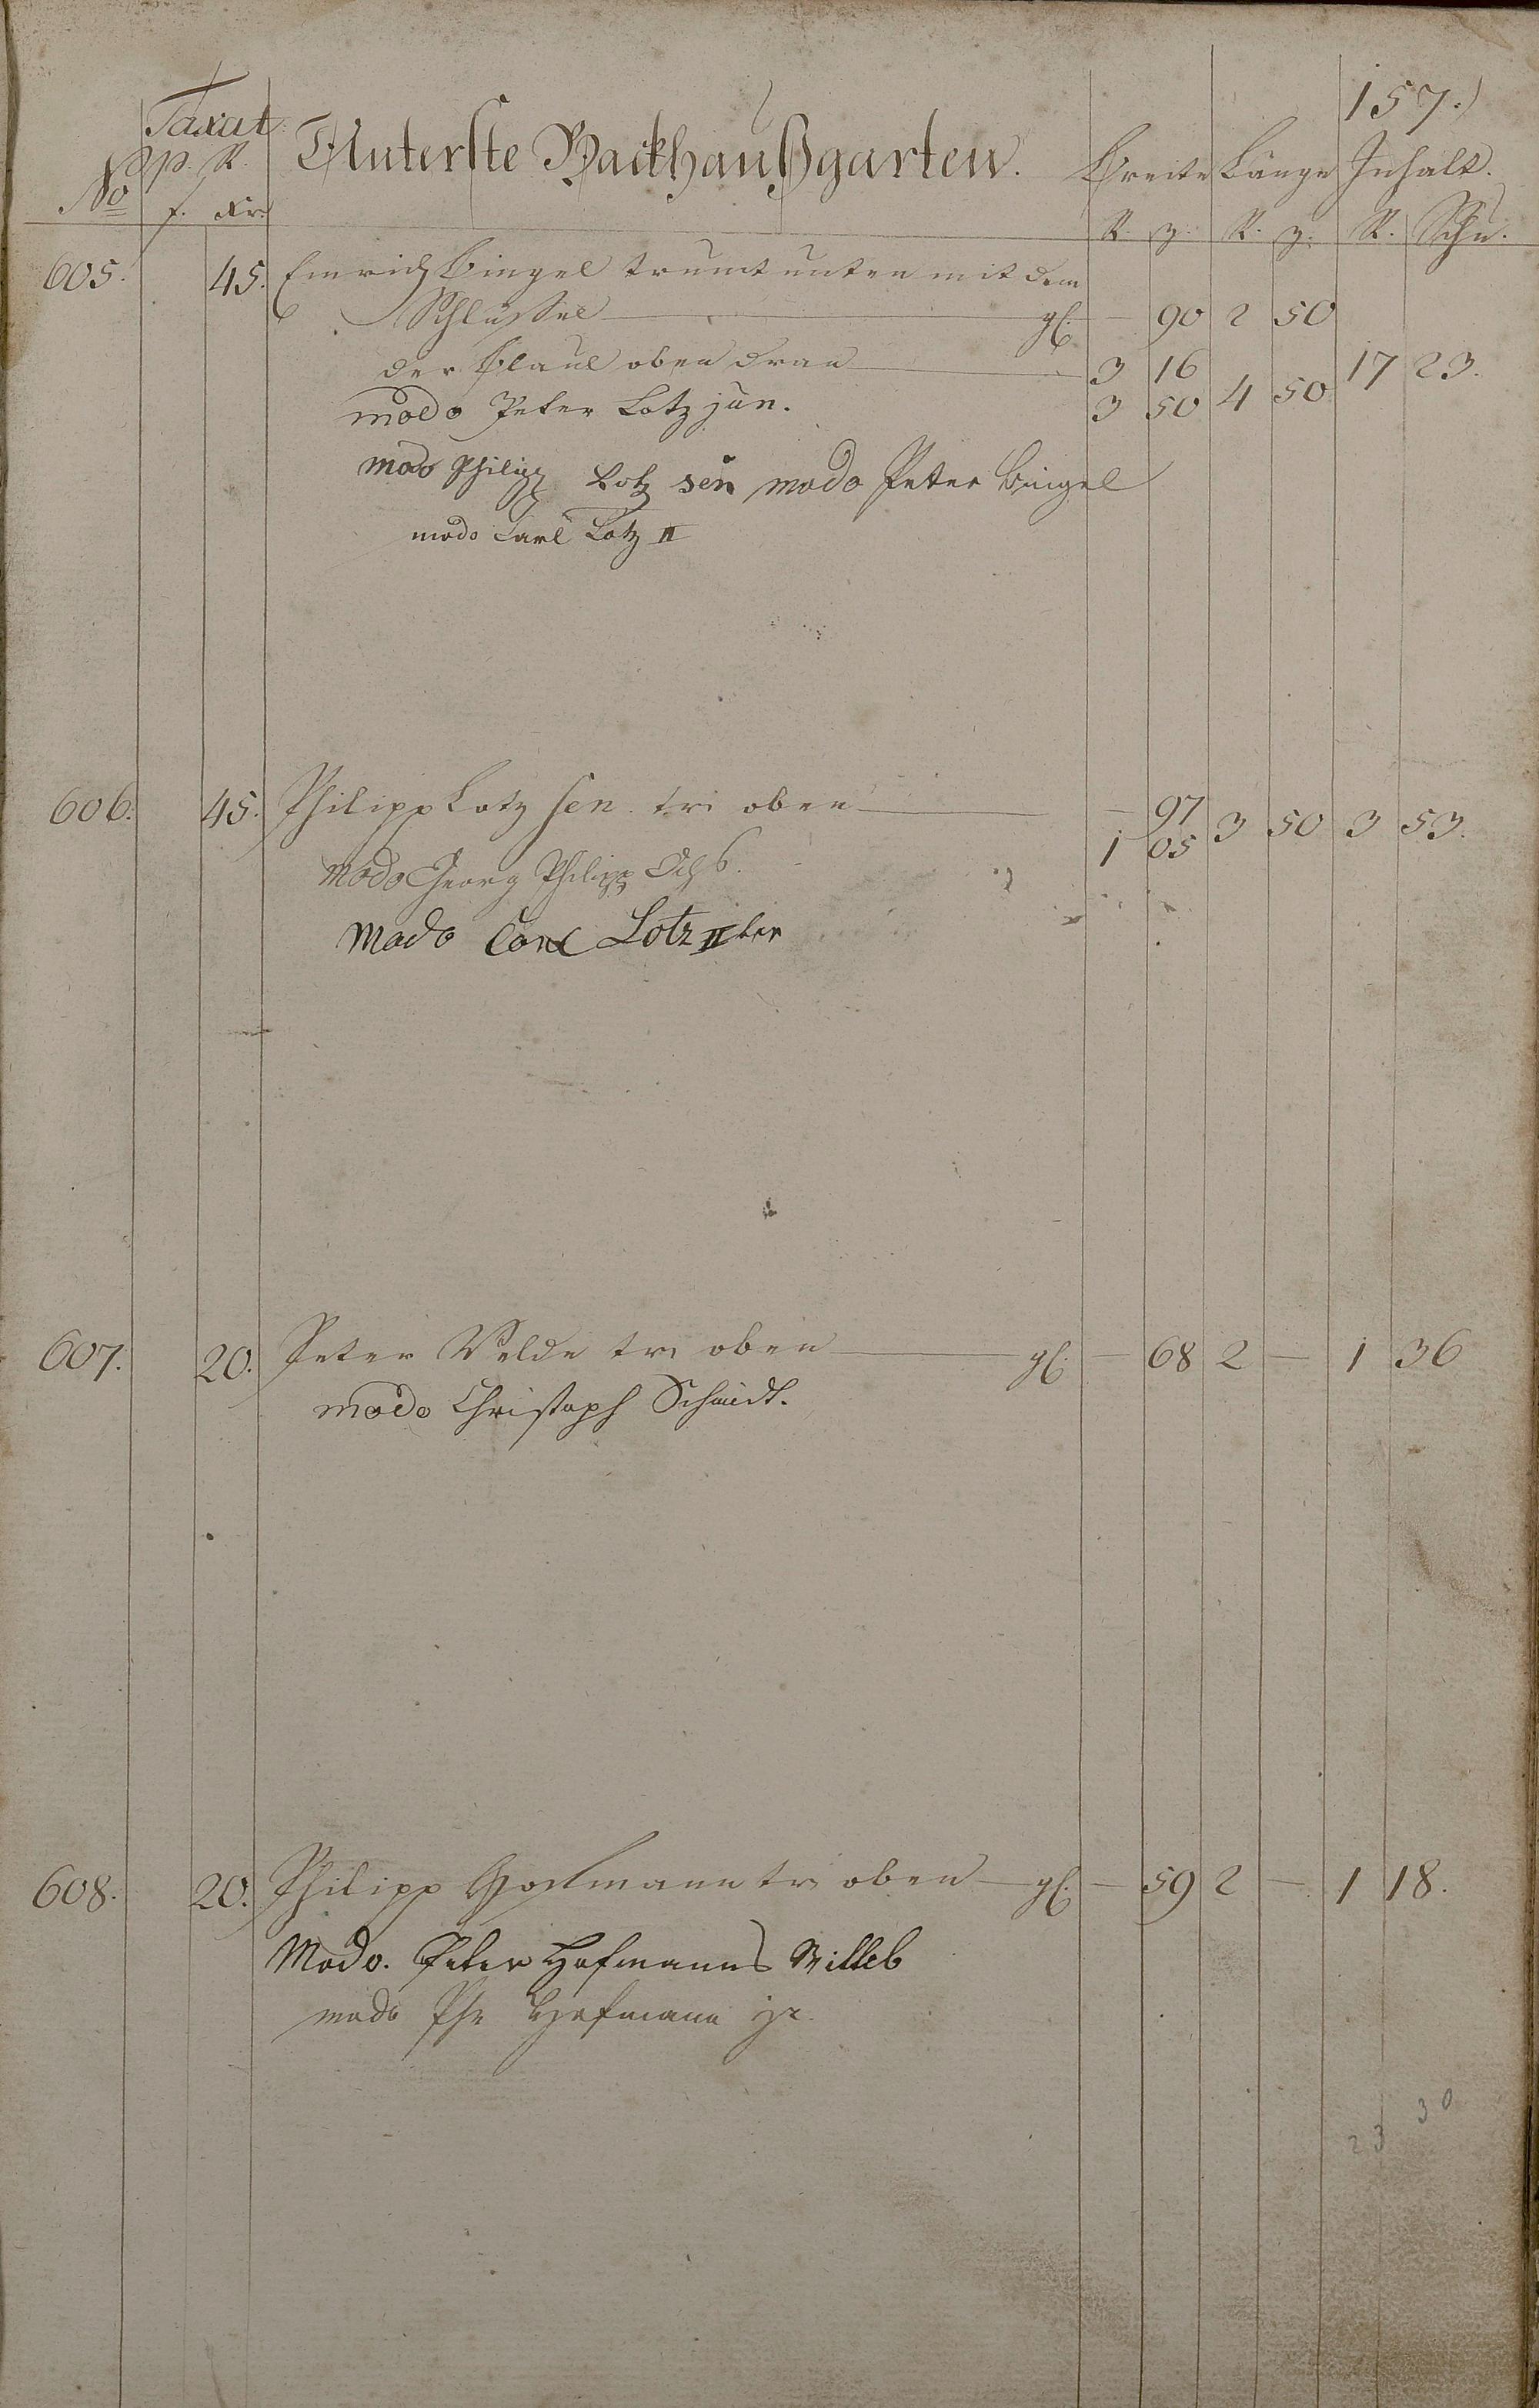 157.)
Taxat.
No p. R. Unterste Backhaußgarten. Breite Länge Inhalt.
f. Xr. R. z. R. z. R. Schu.
605. 45. Emrich Bingel trumt unten mit dem
Schlüssel gl. — 90 2 50
der Plaul oben dran 3 16 17 23.
modo Peter Lotz jun. 3 50 4 50
modo Philipp Lotz sen modo Peter Bingel
modo Carl Lotz II
606. 45. Philipp Lotz sen. tr. oben — 97 3 50 3 53.
1 05
modo Georg Philipp Ochs.
Modo Carl Lotz IIter
607. 20. Peter Velde tr. oben gl. — 68 2 — 1 36
modo Christoph Schmidt.
608. 20. Philipp Hofmann tr. oben gl. — 59 2 — 1 18.
Modo. Peter Hofmanns Wittib
modo Phe Hofmann jr.
23 30